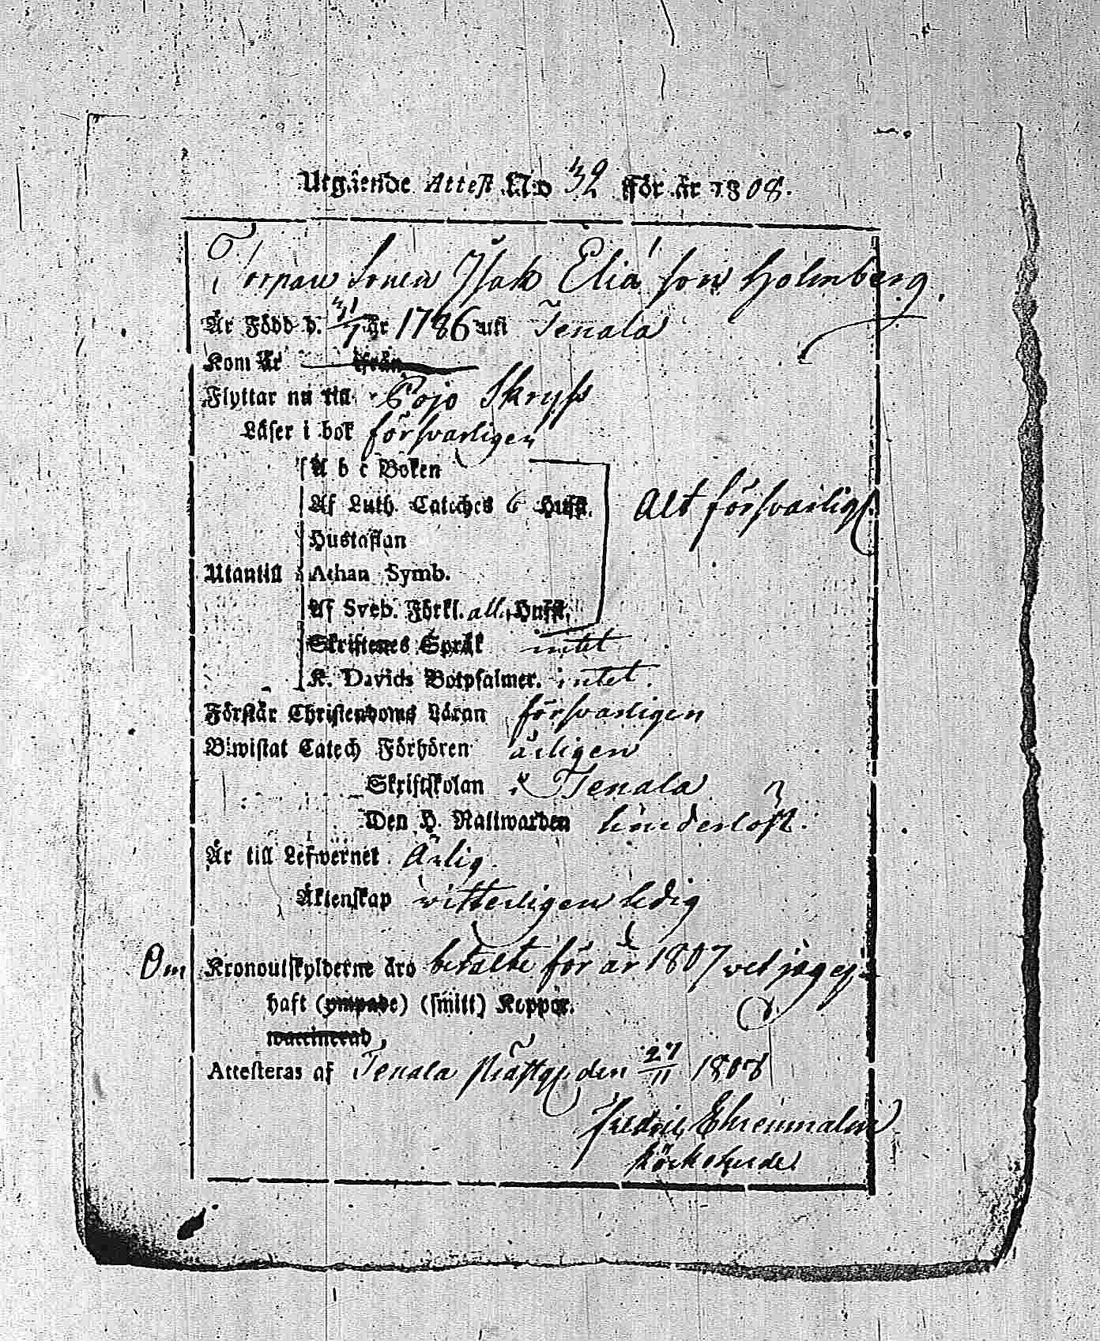 Utgående Attest N:o 32 För år 1808.
Torpare Sonen Isak Eliæ son Holmberg.
Är Född d. 31/1 år 1786 uti Tenala
Kom År ifrån
Flyttar nu till Pojo Skrufs
Läser i bok försvarligen
A b c Boken
Af Luth. Cateches 6 Hufst. Alt försvarligt.
Hustaflan
Utantill Athan Symb.
Af Sveb. Förkl. all. Hufst.
Skriftenes Språk intet
K. Davids Botpsalmer. intet.
Förstår Christendoms Läran försvarligen
Biwistat Catech Förhören årligen
Skriftskolan i Tenala
Den H. Nattwarden
Är till Lefwernet Ärlig
Äktenskap witterligen ledig
Om Kronoutskylderne äro betalte för år 1807 vet jag ej.
haft (ympade) (smitt) Koppor.
waccinerad,
Attesteras af Tenala den 27/11 1808
Fredric Ehrenmalm
Kÿrkoherde